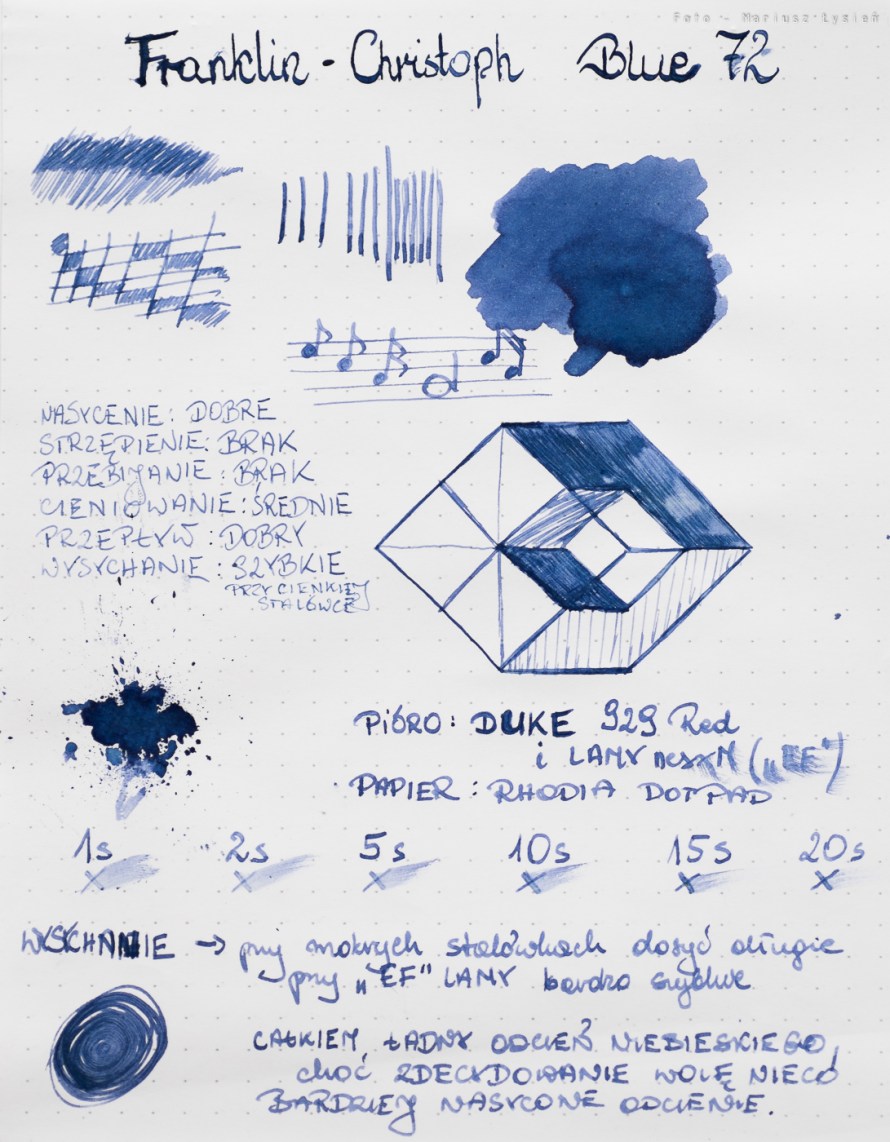 Foto - Mariusz Łyzień
Franklin - Christoph Blue 72
NASYCENIE: DOBRE
STRZĘPIENIE: BRAK
PRZEBIJANIE: BRAK
CIENIOWANIE: ŚREDNIE
PRZEPŁYW: DOBRY
WYSYCHANIE: SZYBKIE
PRZY CIENKIEJ
STALÓWCE
PIÓRO: DUKE 929 Red
i LAMY („EF”)
PAPIER: RHODIA DOTPAD
1s 2s 5s 10s 15s 20s
WYSYCHANIE → przy mokrych stalówkach dosyć długie
przy „EF” LAMY bardzo szybkie
CAŁKIEM ŁADNY ODCIEŃ NIEBIESKIEGO,
choć ZDECYDOWANIE WOLĘ NIECO
BARDZIEJ NASYCONE ODCIENIE.